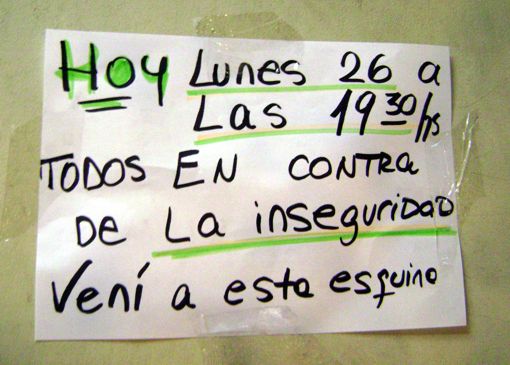 Hoy Lunes 26 a
Las 19 30/hs
TODOS EN CONTRA
De La inseguridad
Vení a esta esquina